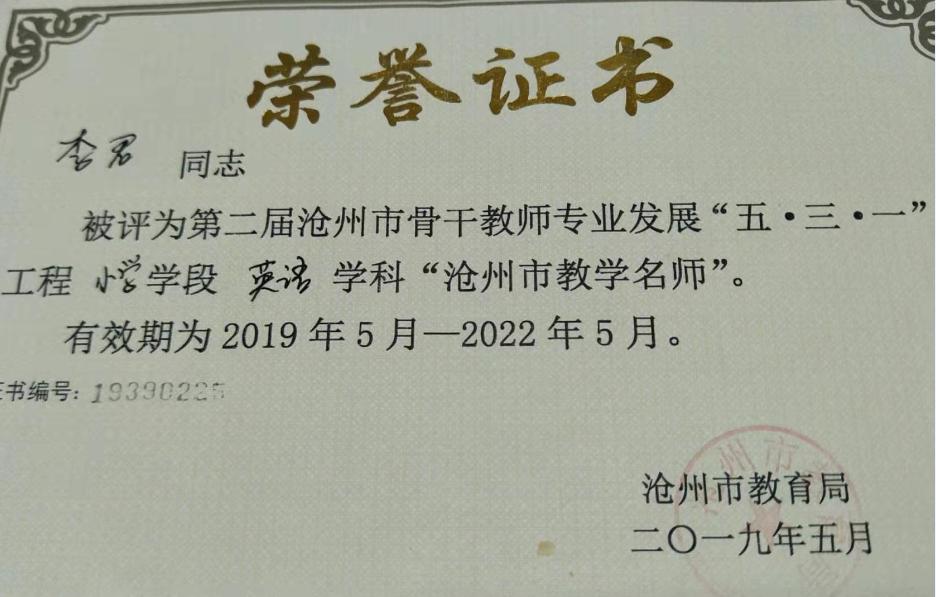 荣誉证书
李君 同志
被评为第二届沧州市骨干教师专业发展“五·三·一”
工程 小学学段 英语 学科“沧州市教学名师”。
有效期为 2019 年 5 月—2022 年 5 月。
书编号: 19390225
沧州市教育局
二〇一九年五月